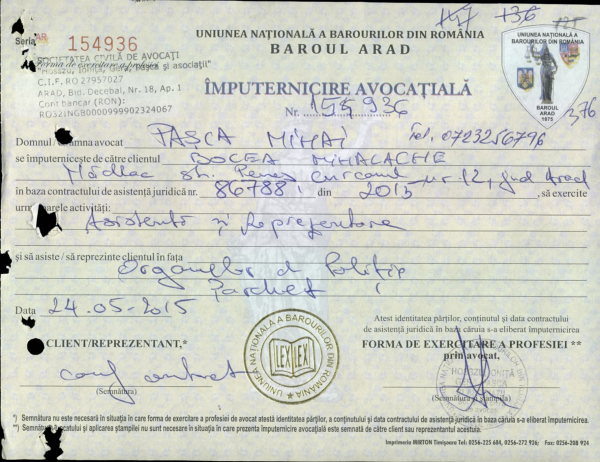 747 736 725
Seria AR 154936
UNIUNEA NAȚIONALĂ A BAROURILOR DIN ROMÂNIA
BAROUL ARAD
UNIUNEA NAȚIONALĂ A BAROURILOR DIN ROMÂNIA
BAROUL ARAD 1875
SOCIETATEA CIVILĂ DE AVOCAȚI
Forma de exercitare a profesiei
C.I.F. RO 27957027
ARAD, Bld. Decebal, Nr. 18, Ap. 1
Cont bancar (RON):
RO32INGB0000999902324067
ÎMPUTERNICIRE AVOCAȚIALĂ
Nr. 154936
376
Domnul / Doamna avocat PAȘCA MIHAI Tel. 0723256796
se împuternicește de către clientul BOCEA MIHALACHE
Nădlac str. Peneș Curcanul nr. 12, jud Arad
în baza contractului de asistență juridică nr. 86788 din 2015, să exercite
următoarele activități:
Asistență și reprezentare
și să asiste / să reprezinte clientul în fața
Organelor d Poliție
Parchet
Data 24.05-2015
Atest identitatea părților, conținutul și data contractului
de asistență juridică în baza căruia s-a eliberat împuternicirea
CLIENT/REPREZENTANT,*
FORMA DE EXERCITARE A PROFESIEI **
prin avocat,
UNIUNEA NAȚIONALĂ A BAROURILOR DIN ROMÂNIA
LEX LEX
conf contract
(Semnătura)
(Semnătura și ștampila)
*) Semnătura nu este necesară în situația în care forma de exercitare a profesiei de avocat atestă identitatea părților, a conținutului și datei contractului de asistență juridică în baza căruia s-a eliberat împuternicirea.
**) Semnătura avocatului și aplicarea ștampilei nu sunt necesare în situația în care prezenta împuternicire avocațială este semnată de către client sau reprezentantul acestuia.
Imprimeria MIRTON Timișoara Tel: 0256-225 684, 0256-272 926; Fax: 0256-208 924